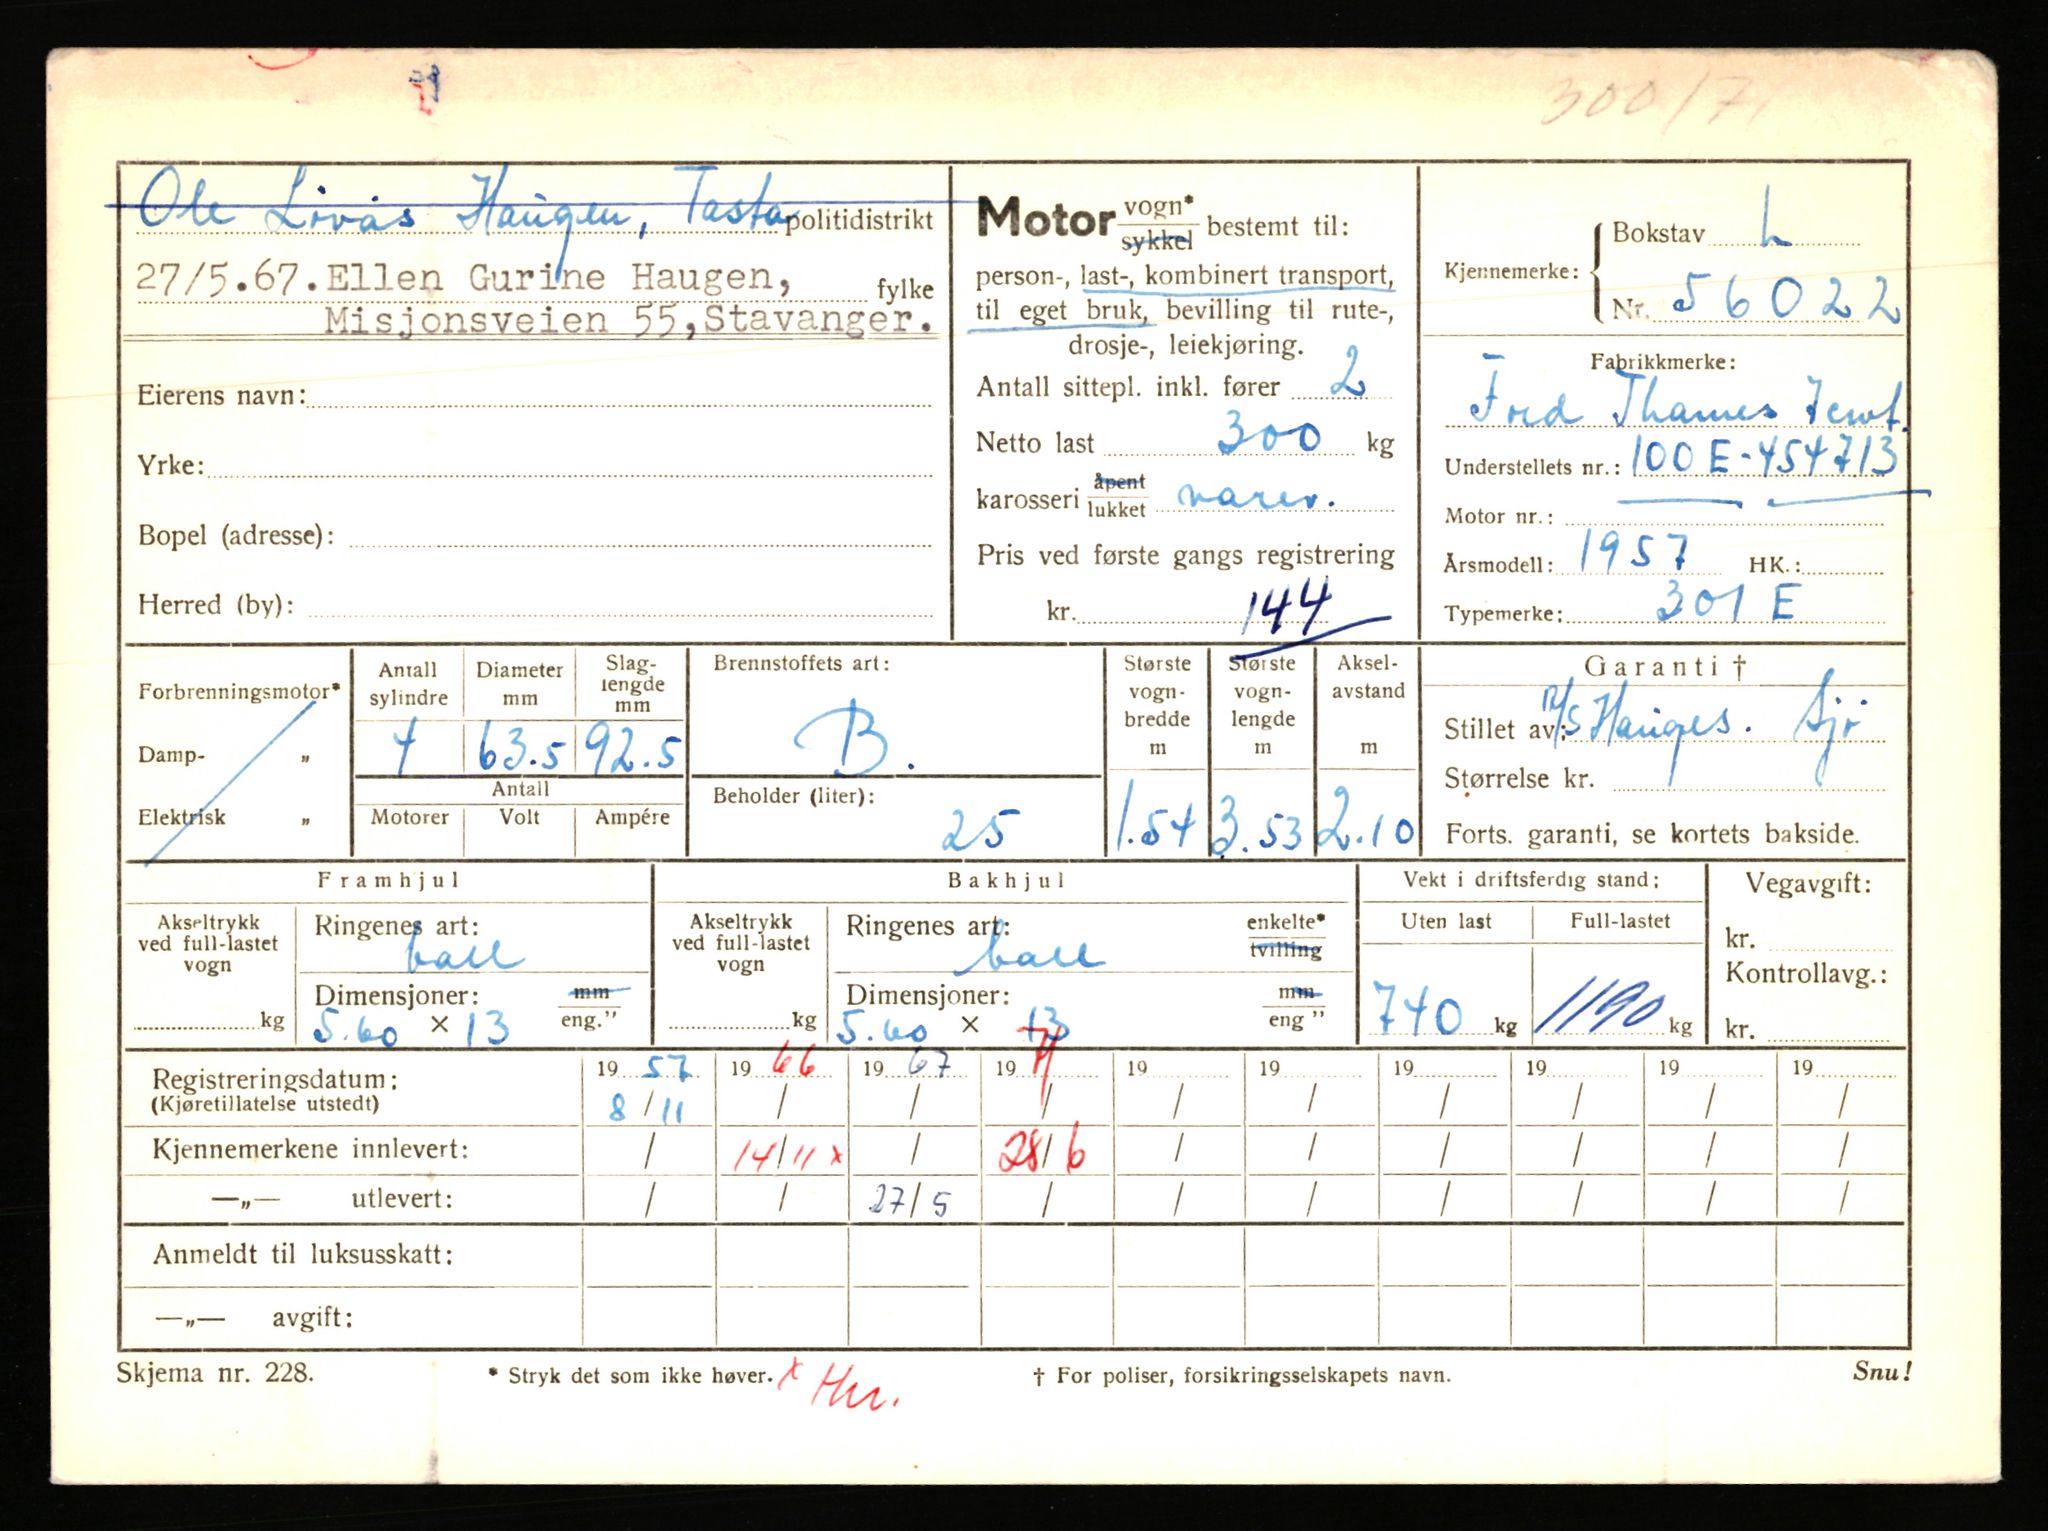 300/7
Ole Lovås Haugen, Tasta politidistrikt
27/5.67. Ellen Gurine Haugen, fylke
Misjonsveien 55, Stavanger.
Eierens navn:
Yrke:
Bopel (adresse):
Herred (by):
Motor vogn* sykkel bestemt til:
person-, last-, kombinert transport,
til eget bruk, bevilling til rute-,
drosje-, leiekjøring.
Antall sittepl. inkl. fører 2
Netto last 300 kg
karosseri åpent lukket varev.
Pris ved første gangs registrering
kr. 144
Kjennemerke: Bokstav L
Nr. 56022
Fabrikkmerke:
Ford Thames
Understellets nr.: 100 E-454713
Motor nr.:
Årsmodell: 1957 HK.:
Typemerke: 301 E
Forbrenningsmotor*
Damp- „
Elektrisk „
Antall sylindre Diameter mm Slag-lengde mm
4 63.5 92.5
Antall
Motorer Volt Ampére
Brennstoffets art:
B.
Beholder (liter):
25
Største vogn-bredde m Største vogn-lengde m Aksel-avstand m
1.54 3.53 2.10
Garanti †
Stillet av: A/S Hauges. Sjø
Størrelse kr.
Forts. garanti, se kortets bakside.
Framhjul
Akseltrykk ved full-lastet vogn
kg
Ringenes art:
ball
Dimensjoner: mm
5.60 × 13 eng."
Bakhjul
Akseltrykk ved full-lastet vogn
kg
Ringenes art: enkelte* tvilling
ball
Dimensjoner: mm
5.60 × 13 eng"
Vekt i driftsferdig stand:
Uten last Full-lastet
740 kg 1190 kg
Vegavgift:
kr.
Kontrollavg.:
kr.
Registreringsdatum: 19 57 19 66 19 67 19 71 19 19 19 19 19 19
(Kjøretillatelse utstedt) 8/11 / / / / / / / / /
Kjennemerkene innlevert: / 14/11 x / 28/6 / / / / / /
—„— utlevert: / / 27/5 / / / / / / /
Anmeldt til luksusskatt:
—„— avgift:
Skjema nr. 228. * Stryk det som ikke høver. x Hu. † For poliser, forsikringsselskapets navn. Snu!